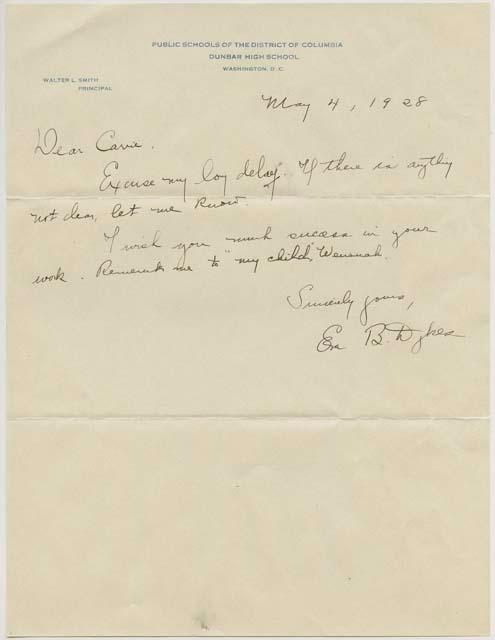 PUBLIC SCHOOLS OF THE DISTRICT OF COLUMBIA
DUNBAR HIGH SCHOOL
WASHINGTON, D. C.
WALTER L. SMITH
PRINCIPAL
May 4, 1928
Dear Carrie.
Excuse my long delay. If there is anything
not clear, let me know.
I wish you much success in your
work. Remember me to "my child", Wenonah.
Sincerely yours,
Eva B. Dykes